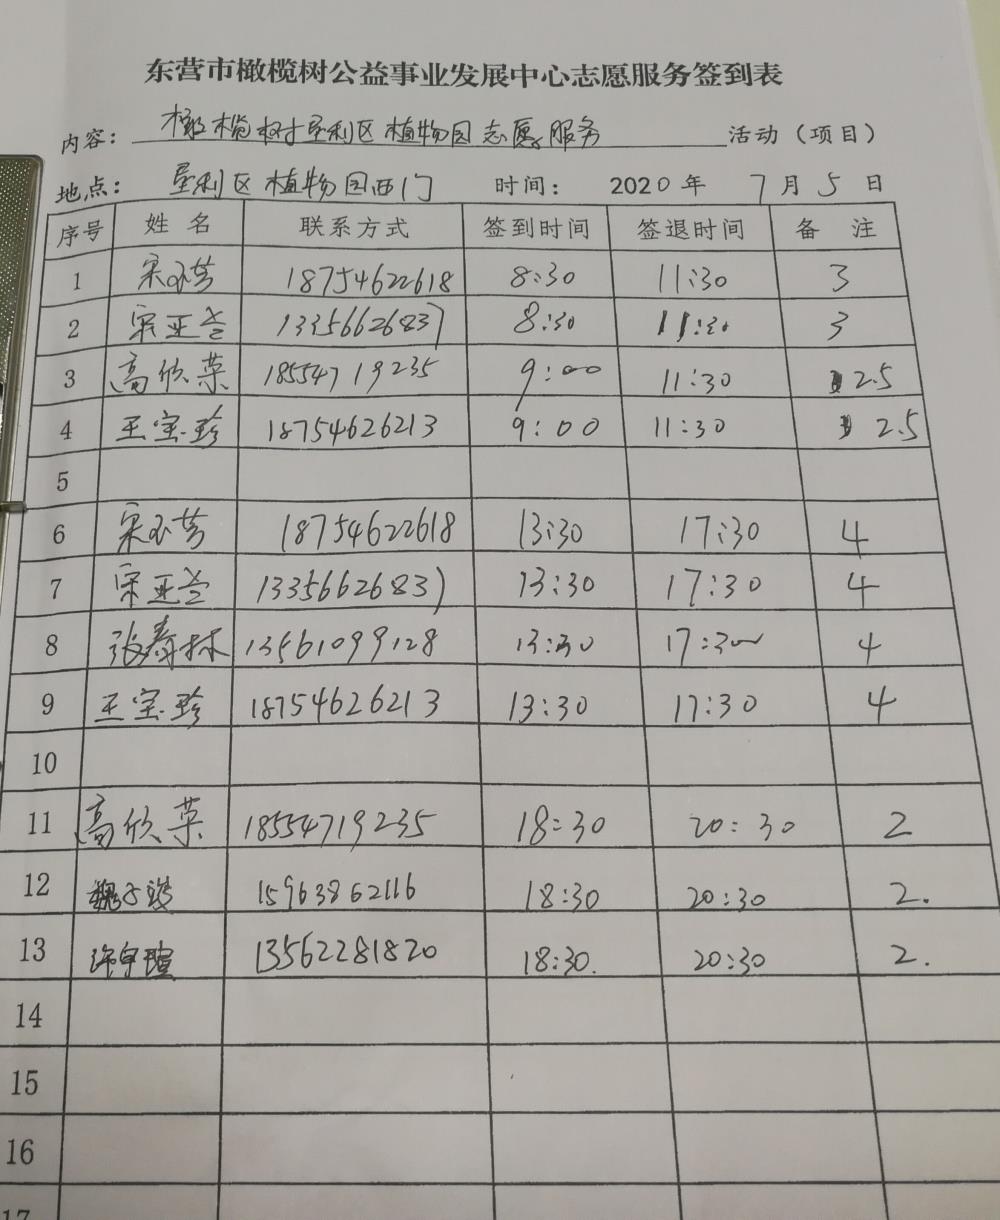 东营市橄榄树公益事业发展中心志愿服务签到表
内容： 橄榄树垦利区植物园志愿服务 活动（项目）
地点： 垦利区植物园西门 时间： 2020年 7月 5日
序号 姓名 联系方式 签到时间 签退时间 备 注
1 宋玉芳 18754622618 8:30 11:30 3
2 宋亚兰 13356626837 8:30 11:30 3
3 高欣荣 18554719235 9:00 11:30 2.5
4 王宝珍 18754626213 9:00 11:30 2.5
5
6 宋玉芳 18754622618 13:30 17:30 4
7 宋亚兰 13356626837 13:30 17:30 4
8 张寿林 13561099128 13:30 17:30 4
9 王宝珍 18754626213 13:30 17:30 4
10
11 高欣荣 18554719235 18:30 20:30 2
12 15963862116 18:30 20:30 2.
13 许宇瑄 13562281820 18:30. 20:30 2.
14
15
16
17